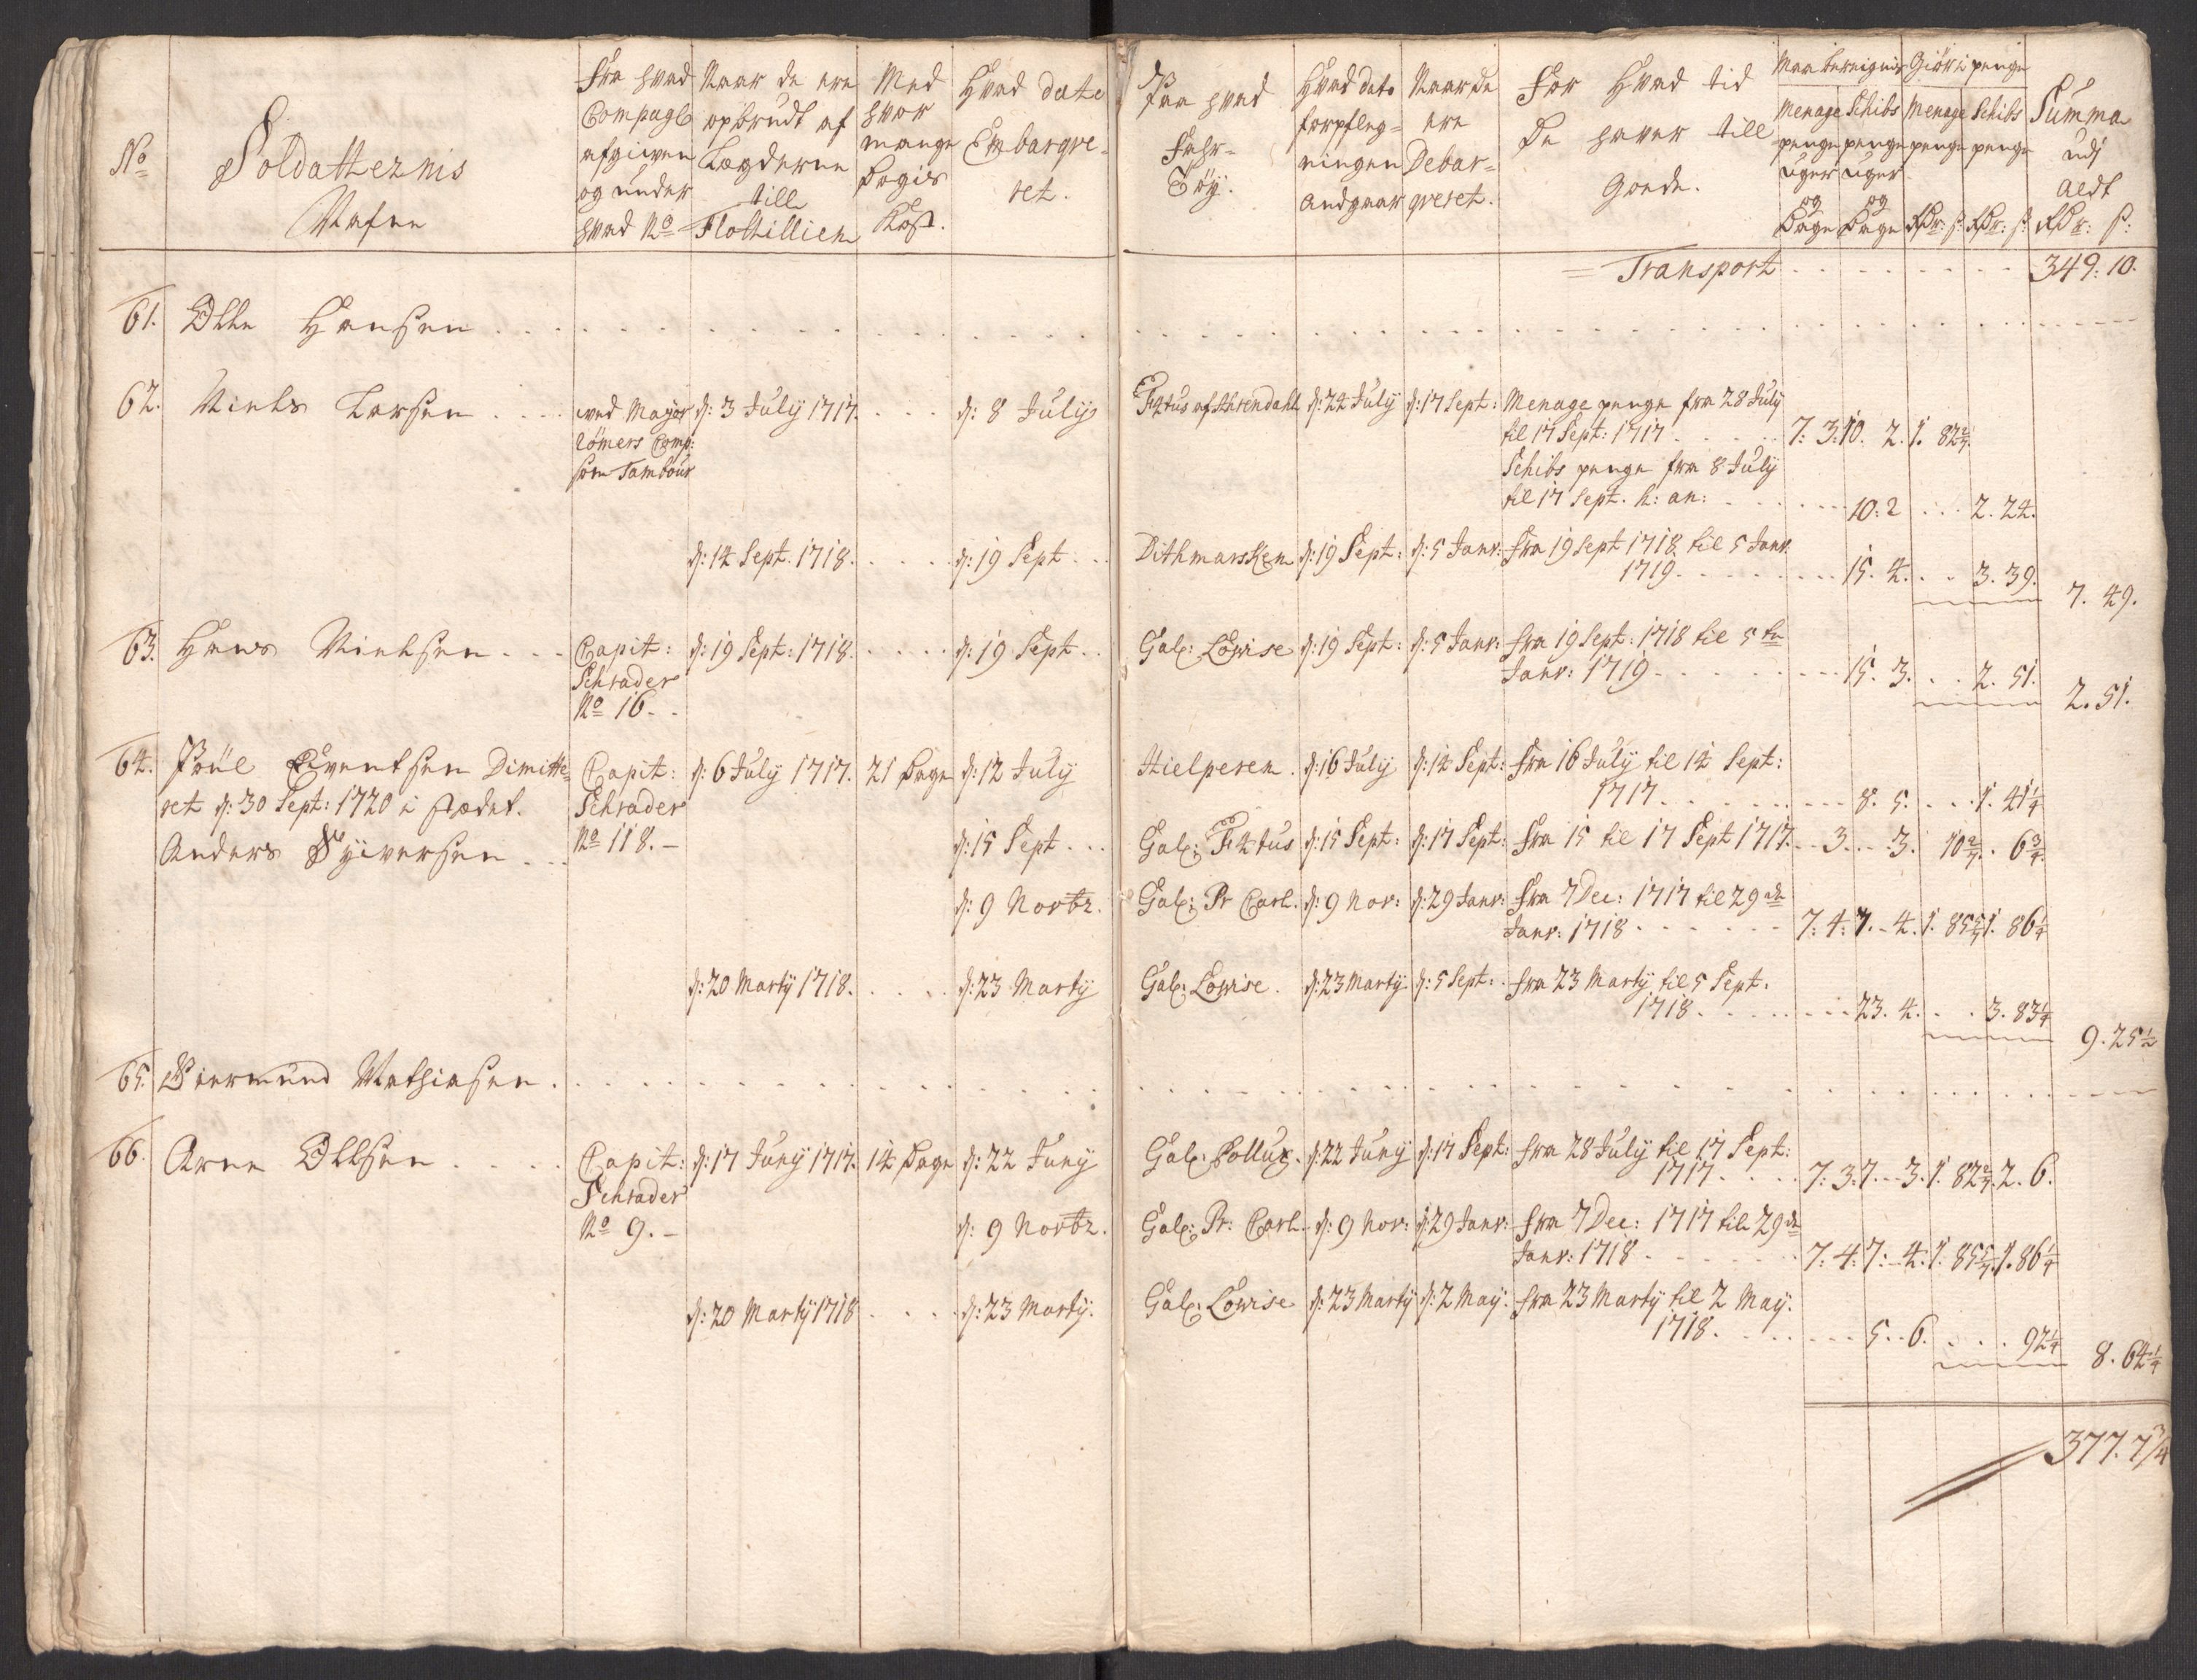 No
Soldatternis
Nafne
Fra hvad
Compagl
afgiwen
og under
hvad No
Naar de ere
opbrudt af
Lægderne
till
Flottillien
Med
hvor
mange
Dagis
Kost.
Hvad dato
Embarqve-
ret.
Paa hvad
Fahr-
Töy.
Hvad dato
forpfleg-
ningen
andgaar
Naar de
ere
Debar-
qveret.
For Hvad tid
De haver till
Goede.
Maa bereignis
Giör i penge
Menage
penge
uger
og
Dage
Schibs
penge
uger
og
Dage
Menage
penge
RDr: ß
Schibs
penge
RDr: ß
Summa
udj
aldt
RDr: ß:
Transport 349: 10.
61. Olle Hansen
62. Niels Larsen
ved Major
Römers Comp:
som Tambour
d: 3 July 1717. d: 8 July
Fœtus af Ahrendahl d: 24 July d: 17 Sept: Menage penge fra 28 July
til 17 Sept: 1717 7: 3: 10. 2. 1. 82 2/7
Schibs penge fra 8 July
til 17 Sept. h: an: 10: 2 2. 24.
d: 14 Sept. 1718. d: 19 Sept
Dithmarsken d: 19 Sept: d: 5 Janv: fra 19 Sept 1718 til 5 Janv
1719 15. 4. 3. 39.
7. 49.
63. Hans Nielsen
Capit:
Schrader
No 16.
d: 19 Sept: 1718. d: 19 Sept
Gal: Lowise d: 19 Sept: d: 5 Janv: fra 19 Sept: 1718 til 5 te
Janv: 1719 15. 3. 2. 51.
2. 51.
64. Poul Eventsen Dimitte-
ret d: 30 Sept: 1720 i stædet.
Anders Syversen
Capit:
Schrader
No 118.
d: 6 July 1717. 21 Dage d: 12 July
Hielperen. d: 16 July d: 14 Sept: fra 16 July til 14 Sept:
1717 8. 5. 1. 41 1/4
d: 15 Sept
Gal: Fœtus d: 15 Sept: d: 17 Sept: fra 15 til 17 Sept 1717. 3 3. 10 2/7. 6 3/4
d: 9 Novbr.
Gal: Pr Carl. d: 9 Nov: d: 29 Janv: fra 7 Dec: 1717 til 29 de
Janv: 1718 7: 4: 7. 4. 1. 85 5/7 1. 86 1/4
d: 20 Marty 1718. d: 23 Marty
Gal: Lowise. d: 23 Marty d: 5 Sept: fra 23 Marty til 5 Sept.
1718 23. 4. 3. 83 1/4
9. 25 1/2
65. Biermund Mathiasen.
66. Arne Ollsen
Capit:
Schrader
No 9.
d: 17 Juny 1717. 14 Dage d: 22 Juny
Gal: Pollux. d: 22 Juny d: 17 Sept: fra 28 July til 17 Sept:
1717 7: 3: 7. 3. 1. 82 2/7. 2. 6.
d: 9 Novbr.
Gal: Pr: Carl. d: 9 Nov: d: 29 Janv: fra 7 Dec: 1717 til 29 de
Janv: 1718 7: 4: 7: 4. 1. 85 5/7. 1. 86 1/4
d: 20 Marty 1718 d: 23 Marty.
Gal: Lowise d: 23 Marty d: 2 May. fra 23 Marty til 2 May.
1718. 5. 6. 92 1/4
8. 64 1/4
377. 7 3/4